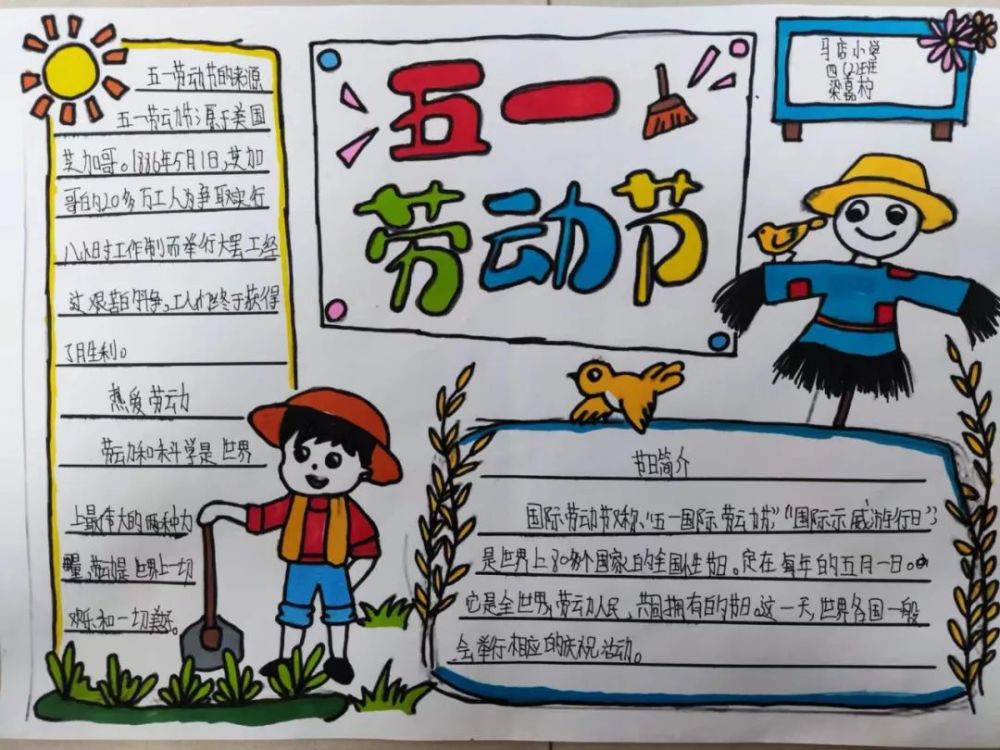 五一
劳动节
马店小学
四(2)班
梁嘉柠
五一劳动节的来源
五一劳动节源于美国
芝加哥。1886年5月1日,芝加
哥的20多万工人为争取实行
八小时工作制而举行大罢工经
过艰苦的斗争,工人们终于获得
了胜利。
热爱劳动
劳动和科学是世界
上最伟大的两种力
量,劳动是世界上一切
欢乐和一切美好。
节日简介
国际劳动节又称、“五一国际劳动节”“国际示威游行日”;
是世界上80多个国家的全国性节日。定在每年的五月一日。
它是全世界劳动人民,共同拥有的节日。这一天,世界各国一般
会举行相应的庆祝活动。